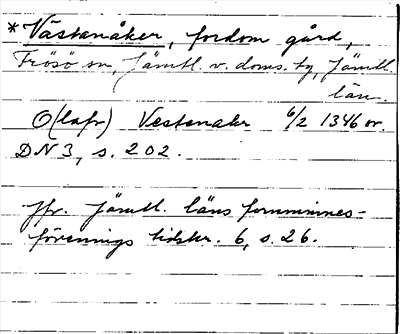 *Västanåker, fordom gård,
Frösö sn, Jämtl. v. doms. tg, Jämtl.
län.
O(lafr) Vestanakr 6/2 1346 or.
DN 3, s. 202.
Jfr. Jämtl. läns fornminnes-
förenings tidskr. 6, s. 26.